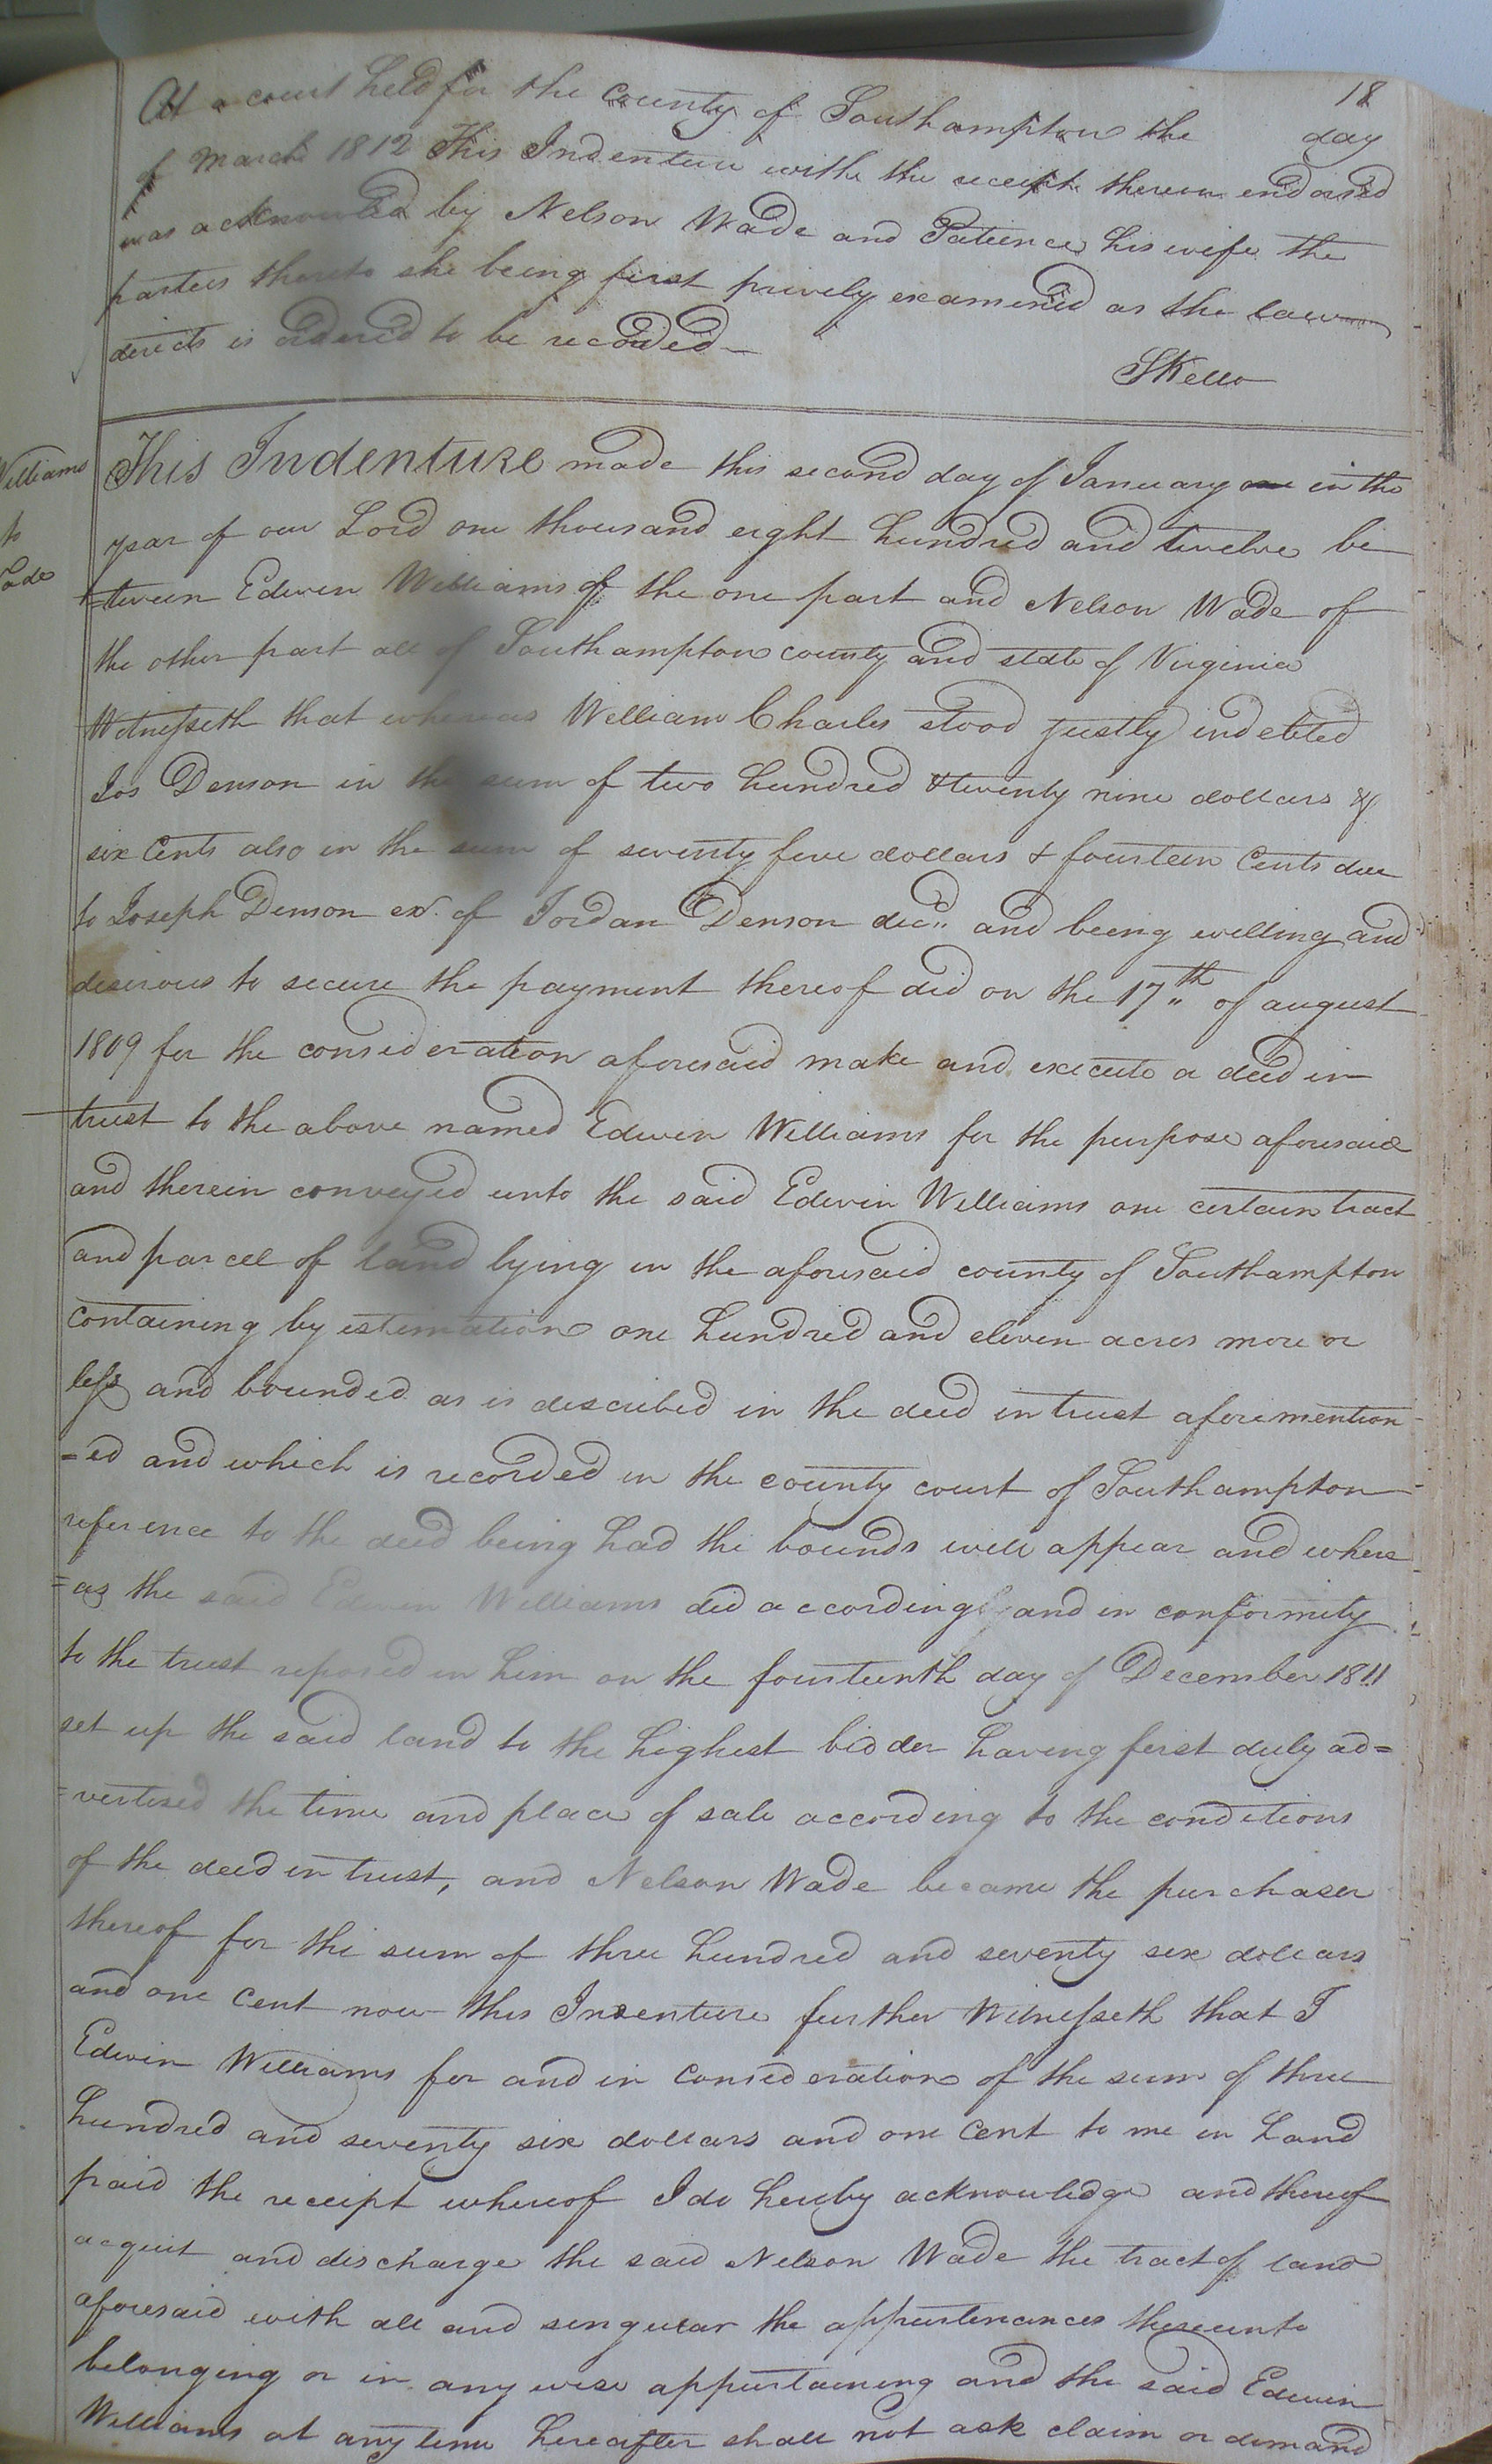 18
At a court held for the county of Southampton the day
of March 1812 This Indenture with the receipt thereon endorsed
was acknowled by Nelson Wade and Patience his wife the
parties thereto she being first privily examined as the law
directs is ordered to be recorded—
SKello
Williams
to
Wade
This Indenture made this second day of January in the
year of our Lord one thousand eight hundred and twelve be
=tween Edwin Williams of the one part and Nelson Wade of
the other part all of Southampton county and state of Virginia
Witnesseth that whereas William Charles stood justly indebted
Jos Denson in the sum of two hundred & twenty nine dollars &
six Cents also in the sum of seventy five dollars & fourteen Cents due
to Joseph Denson exr. of Jordan Denson decd. and being willing and
desirous to secure the payment thereof did on the 17th of august
1809 for the consideration aforesaid make and execute a deed in
trust to the above named Edwin Williams for the purpose aforesaid
and therein conveyed unto the said Edwin Williams one certain tract
and parcel of land lying in the aforesaid county of Southampton
containing by estimation one hundred and eleven acres more or
less and bounded as is described in the deed in trust aforemention
=ed and which is recorded in the county court of Southampton
reference to the deed being had the bounds will appear and where
=as the said Edwin Williams did accordingly and in conformity
to the trust reposed in him on the fourteenth day of December 1811
set up the said land to the highest bidder having first duly ad=
=vertised the time and place of sale according to the conditions
of the deed in trust, and Nelson Wade became the purchaser
thereof for the sum of three hundred and seventy six dollars
and one Cent now this Indenture further Witnesseth that I
Edwin Williams for and in Consideration of the sum of three
hundred and seventy six dollars and one Cent to me in hand
paid the receipt whereof I do hereby acknowledge and thereof
acquit and discharge the said Nelson Wade the tract of land
aforesaid with all and singular the appurtenances thereunto
belonging or in any wise appurtaining and the said Edwin
Williams at any time hereafter shall not ask claim or demand